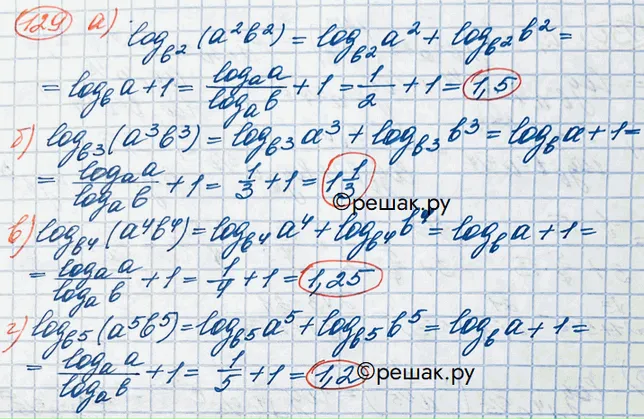 129 а)
log_{b^2}(a^2b^2) = log_{b^2}a^2 + log_{b^2}b^2 =
= log_b a + 1 = \frac{log_a a}{log_a b} + 1 = \frac{1}{2} + 1 = 1,5
б) log_{b^3}(a^3b^3) = log_{b^3}a^3 + log_{b^3}b^3 = log_b a + 1 =
= \frac{log_a a}{log_a b} + 1 = \frac{1}{3} + 1 = 1\frac{1}{3}
©решак.ру
в) log_{b^4}(a^4b^4) = log_{b^4}a^4 + log_{b^4}b^4 = log_b a + 1 =
= \frac{log_a a}{log_a b} + 1 = \frac{1}{4} + 1 = 1,25
г) log_{b^5}(a^5b^5) = log_{b^5}a^5 + log_{b^5}b^5 = log_b a + 1 =
= \frac{log_a a}{log_a b} + 1 = \frac{1}{5} + 1 = 1,2
©решак.ру